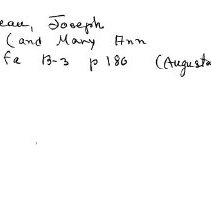 eau, Joseph
(and Mary Ann
fa B-3 p 186 (Augusta